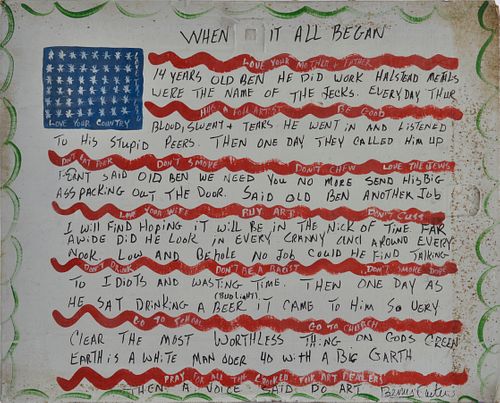 WHEN IT ALL BEGAN
LOVE YOUR MOTHER + FATHER
14 YEARS OLD BEN HE DID WORK HALSTEAD METALS
WERE THE NAME OF THE JECKS. EVERYDAY THUR
HUG A FOLK ARTIST BE GOOD
LOVE YOUR COUNTRY
BLOOD, SWEAT + TEARS HE WENT IN AND LISTENED
TO HIS STUPID PEERS. THEN ONE DAY THEY CALLED HIM UP
DON'T EAT PORK DON'T SMOKE DON'T CHEW LOVE THE JEWS
FRONT SAID OLD BEN WE NEED YOU NO MORE SEND HIS BIG
ASS PACKING OUT THE DOOR. SAID OLD BEN ANOTHER JOB
LOVE YOUR WIFE BUY ART DON'T CUSS
I WILL FIND HOPING IT WILL BE IN THE NICK OF TIME FAR
AWIDE DID HE LOOK IN EVERY CRANNY AND AROUND EVERY
NOOK. LOW AND BEHOLE NO JOB COULD HE FIND TALKING
DON'T DRINK DON'T BE A RACIST DON'T SMOKE DOPE
TO IDIOTS AND WASTING TIME. THEN ONE DAY AS
(BUD LIGHT)
HE SAT DRINKING A BEER IT CAME TO HIM SO VERY
GO TO SCHOOL GO TO CHURCH
CLEAR THE MOST WORTHLESS THING ON GODS GREEN
EARTH IS A WHITE MAN OVER 40 WITH A BIG GARTH
PRAY FOR ALL THE CROOKED FOLK ART DEALERS
THEN A VOICE SAID DO ART